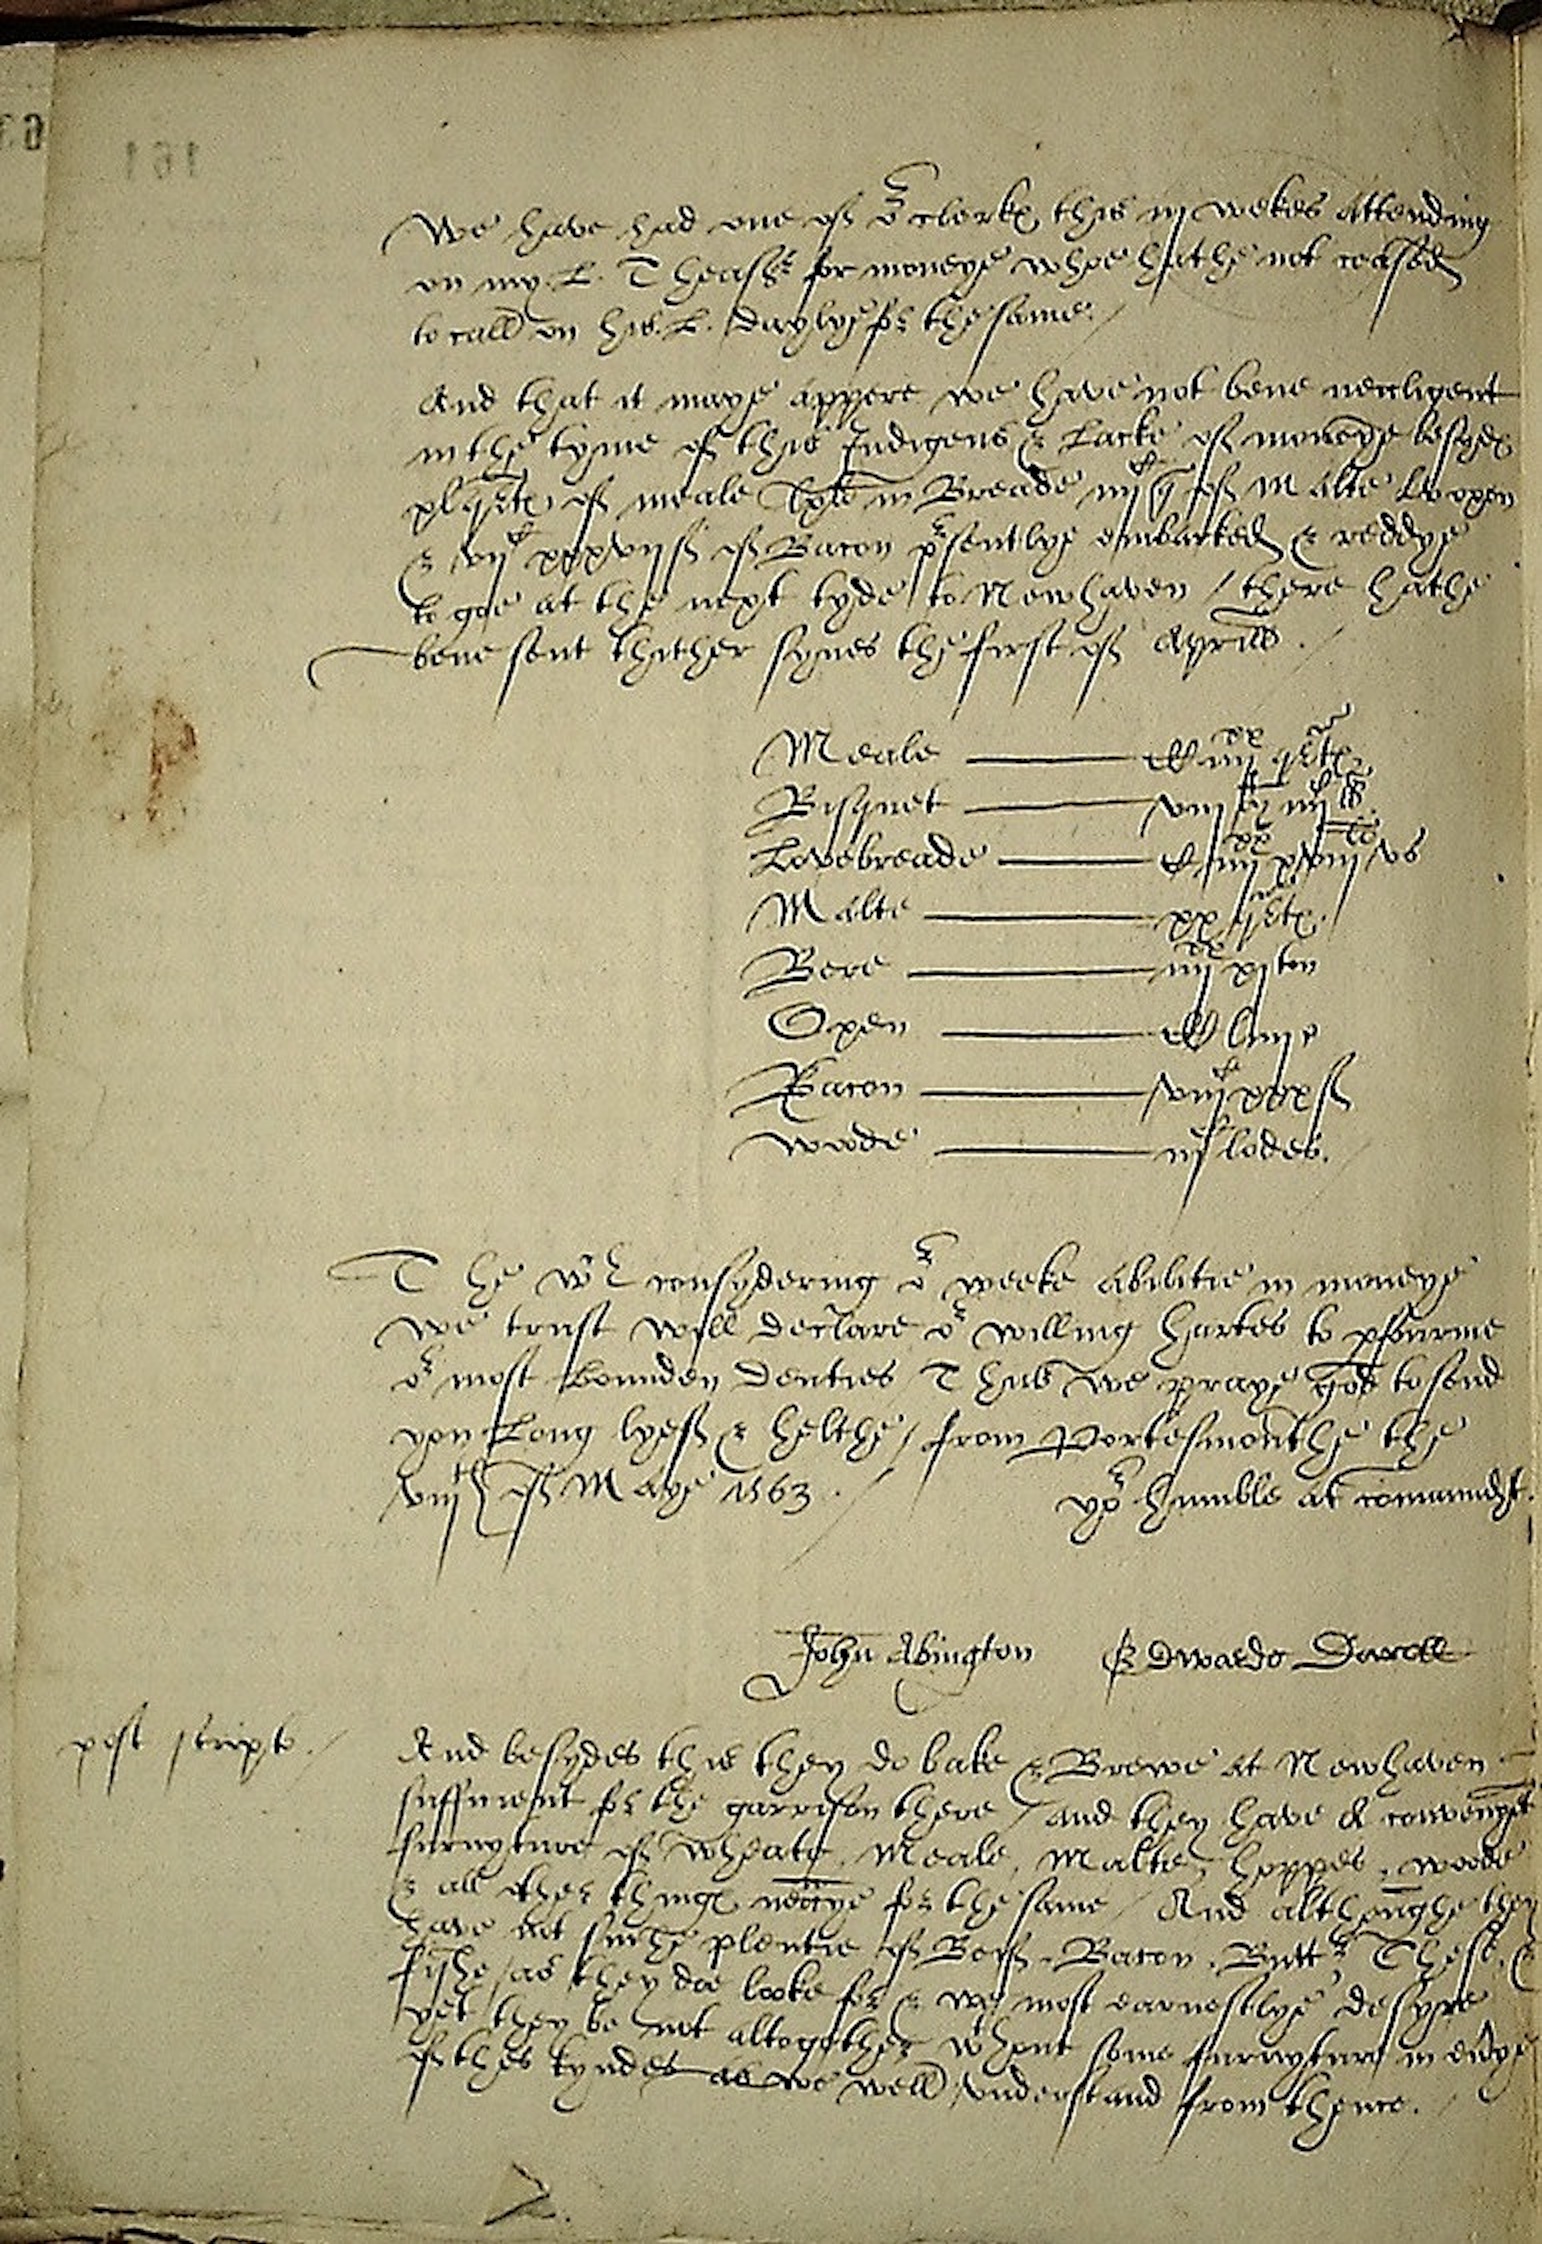 161
We have had one of or clerkes this iij wekes attending
on my L. Theasrer for moneye whoe hathe not ceased
to call on his L. daylye for the same /
And that it maye appere we have not bene necligent
in the tyme of this Indigens & Lacke of moneye besydes
xl qrters of meale in Breade iiijc qr of Malte Lv oxen
& vijc xxxvij fl of Bacon presentlye embarked & reddye
to goe at the next tyde to Newhaven / there hathe
bene sent thither synes the first of Aprill. /
Meale —— iiijxx qrters
Bisquet —— viij
Lovebreade —— iiijxx
Malte —— xx qrters.
Bere —— iiijxx xj ton
Oxen —— liiij
Bacon —— viijc xxx fl
Wode —— iijc lodes.
The wch consydering or weeke abilitie in moneye
we trust will declare or willing hartes to pfourme
or most bounden deuties Thus we praye god to send
you Long lyef & helthe / from Portesmouthe the
viijth of Maye 1563. /
yor humble at comaundmt.
John Abington Edwarde Darell
post scripto. /
And besydes this they do bake & Brewe at Newhaven
sufficient for the garrison there / and they have a convenyent
furnyture of wheate, Meale, Malte, hoppes, woode
& all other thinges necessarye for the same / And althoughe they
have not suche plentie of Beif, Bacon, Butter Chese, &
fishe / as they doe looke for & we most earnestlye desyre
yet they be not altogether wthout some furnyture in
of thes kyndes as we well understand from thence. /